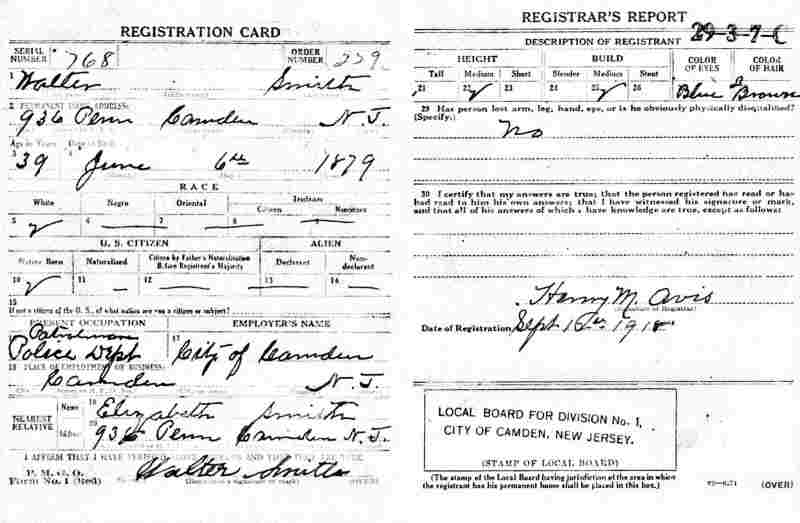 REGISTRATION CARD
SERIAL NUMBER 768 ORDER NUMBER 279
1 Walter Smith
2 PERMANENT HOME ADDRESS:
936 Penn Camden N. J.
Age in Years Date of Birth
3 39 4 June 6th 1879
RACE
White Negro Oriental Indian
Citizen Noncitizen
5 6 7 8
U. S. CITIZEN ALIEN
Native Born Naturalized Citizen by Father's Naturalization Before Registrant's Majority Declarant Non-declarant
10 11 12 13 14
15
If not a citizen of the U. S., of what nation are you a citizen or subject?
PRESENT OCCUPATION EMPLOYER'S NAME
Patrolman
Police Dept 17 City of Camden
18 PLACE OF EMPLOYMENT OR BUSINESS:
Camden N. J.
NEAREST RELATIVE
Name 19 Elizabeth Smith
Address 20 936 Penn Camden N. J.
I AFFIRM THAT I HAVE VERIFIED ABOVE ANSWERS AND THAT THEY ARE TRUE
P. M. G. O.
Form No. 1 (Red) Walter Smith
(Registrant's signature or mark) (OVER)
REGISTRAR'S REPORT
29-3-7-C
DESCRIPTION OF REGISTRANT
HEIGHT BUILD COLOR OF EYES COLOR OF HAIR
Tall Medium Short Slender Medium Stout
21 22 23 24 25 26 Blue Brown
29 Has person lost arm, leg, hand, eye, or is he obviously physically disqualified?
(Specify.) No
30 I certify that my answers are true; that the person registered has read or has
had read to him his own answers; that I have witnessed his signature or mark,
and that all of his answers of which I have knowledge are true, except as follows:
Henry M. Avis
(Signature of Registrar)
Date of Registration Sept 12th 1918
LOCAL BOARD FOR DIVISION No. 1,
CITY OF CAMDEN, NEW JERSEY.
(STAMP OF LOCAL BOARD)
(The stamp of the Local Board having jurisdiction of the area in which
the registrant has his permanent home shall be placed in this box.)
(OVER)